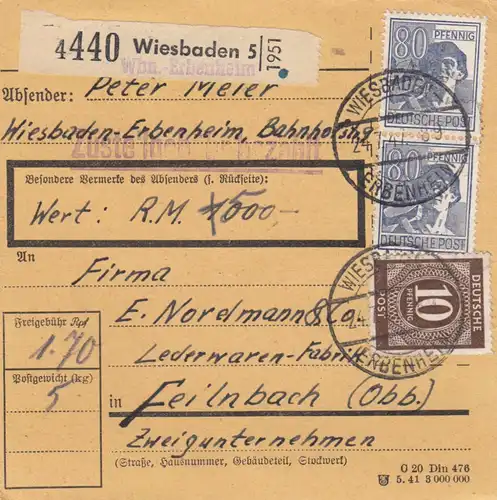 4440 Wiesbaden 5 1951
Wbn.-Erbenheim
Absender: Peter Meier
Wiesbaden-Erbenheim, Bahnhofstr.
bezahlt
Besondere Vermerke des Absenders (s. Rückseite):
Wert: R.M. 1500-
An
Firma
E. Nordmann & Co.
Lederwaren-Fabrik
in Feilnbach (Obb.)
Zweigunternehmen
(Straße, Hausnummer, Gebäudeteil, Stockwerk)
Freigebühr Rpf
1.70
Postgewicht (kg)
5
C 20 Din 476
5. 41 3 000 000
80
DEUTSCHE POST
80
DEUTSCHE POST
DEUTSCHE POST
10
PFENNIG
WIESBADEN
ERBENHEIM
WIESBADEN
ERBENHEIM